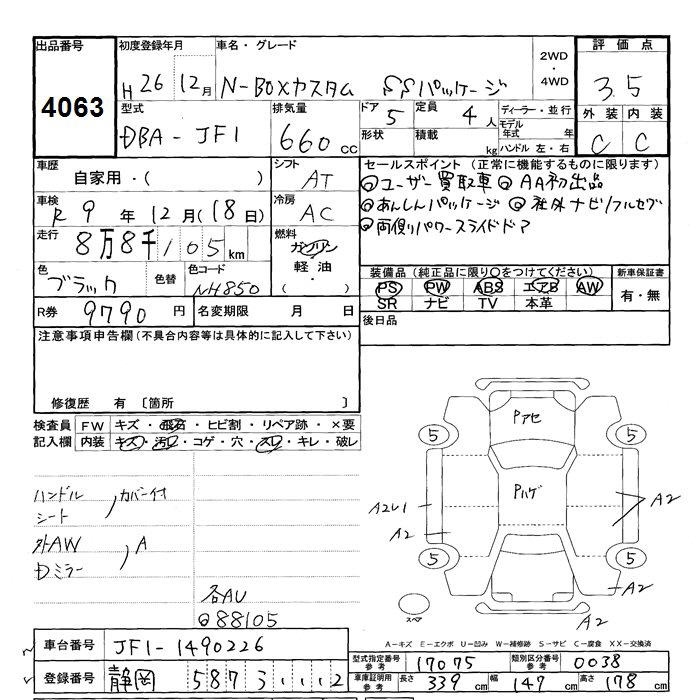 出品番号 4063
初度登録年月 H26 12月
車名・グレード N-BOXカスタム SSパッケージ
2WD・4WD
評価点 3.5
外装 C 内装 C
型式 DBA-JF1
排気量 660cc
ドア 5 形状
定員 4人 積載 kg
ディーラー・並行
モデル年式 年
ハンドル 左・右
車歴 自家用・( )
シフト AT
車検 R9年12月(18日)
冷房 AC
走行 8万8千105km
燃料 ガソリン・軽油・( )
色 ブラック 色替 色コード NH850
R券 9790円 名変期限 月 日
セールスポイント (正常に機能するものに限ります)
◎ユーザー買取車 ◎AA初出品
◎あんしんパッケージ ◎社外ナビ/フルセグ
◎両側パワースライドドア
装備品(純正品に限り〇をつけてください) 新車保証書
PS PW ABS エアB AW 有・無
SR ナビ TV 本革
後日品
注意事項申告欄(不具合内容等は具体的に記入して下さい)
修復歴 有 〔箇所
検査員記入欄
FW キズ・飛石・ヒビ割・リペア跡・×要
内装 キズ・汚レ・コゲ・穴・スレ・キレ・破レ
ハンドル シート カバー付
外AW Dミラー A
各AU
◎88105
Pアセ
5 5
Pハゲ
A2U1
A2
A2
5 5
A2
A2
スペア
A-キズ E-エクボ U-凹み W-補修跡 S-サビ C-腐食 XX-交換済
車台番号 JF1-1490226
登録番号 静岡 587 う ・・・2
型式指定番号 参考 17075 類別区分番号 参考 0038
車庫証明用 参考 長さ 339cm 幅 147cm 高さ 178cm